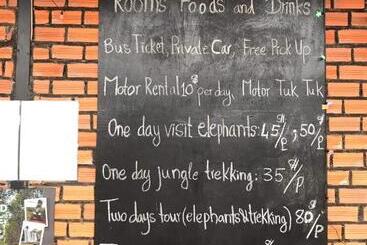 Rooms Foods and Drinks
Bus Ticket, Private Car, Free Pick Up
Motor Rental 10$ per day, Motor Tuk Tuk
One day visit elephants: 45$/P, 50$/P
One day jungle trekking: 35$/P
Two days tour (elephants & trekking) 80$/P